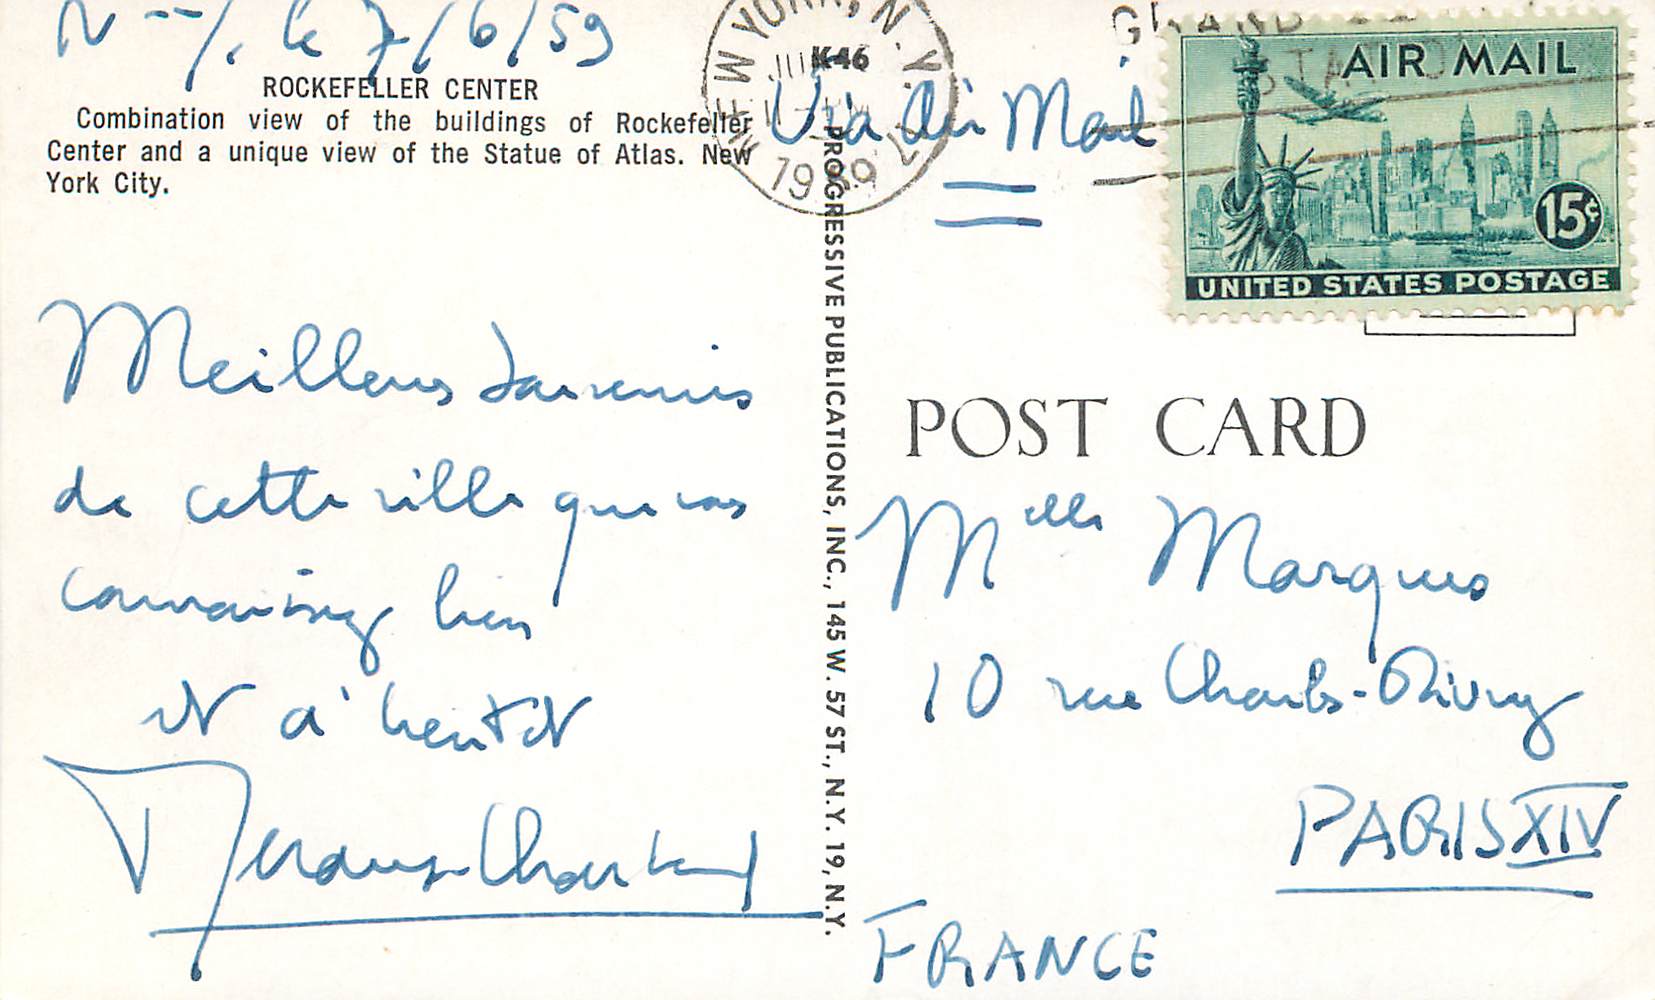 N--/. le 7/6/59
ROCKEFELLER CENTER
Combination view of the buildings of Rockefeller
Center and a unique view of the Statue of Atlas. New
York City.
Meilleurs souvenirs
de cette ville que vous
connaissez bien
et à bientôt
NEW YORK, N.Y.
1959
K46
Via Air Mail
GRAND
AIR MAIL
15¢
UNITED STATES POSTAGE
PROGRESSIVE PUBLICATIONS, INC., 145 W. 57 ST., N.Y. 19, N.Y.
POST CARD
Melle Marquis
10 rue Charles-Divry
PARIS XIV
FRANCE